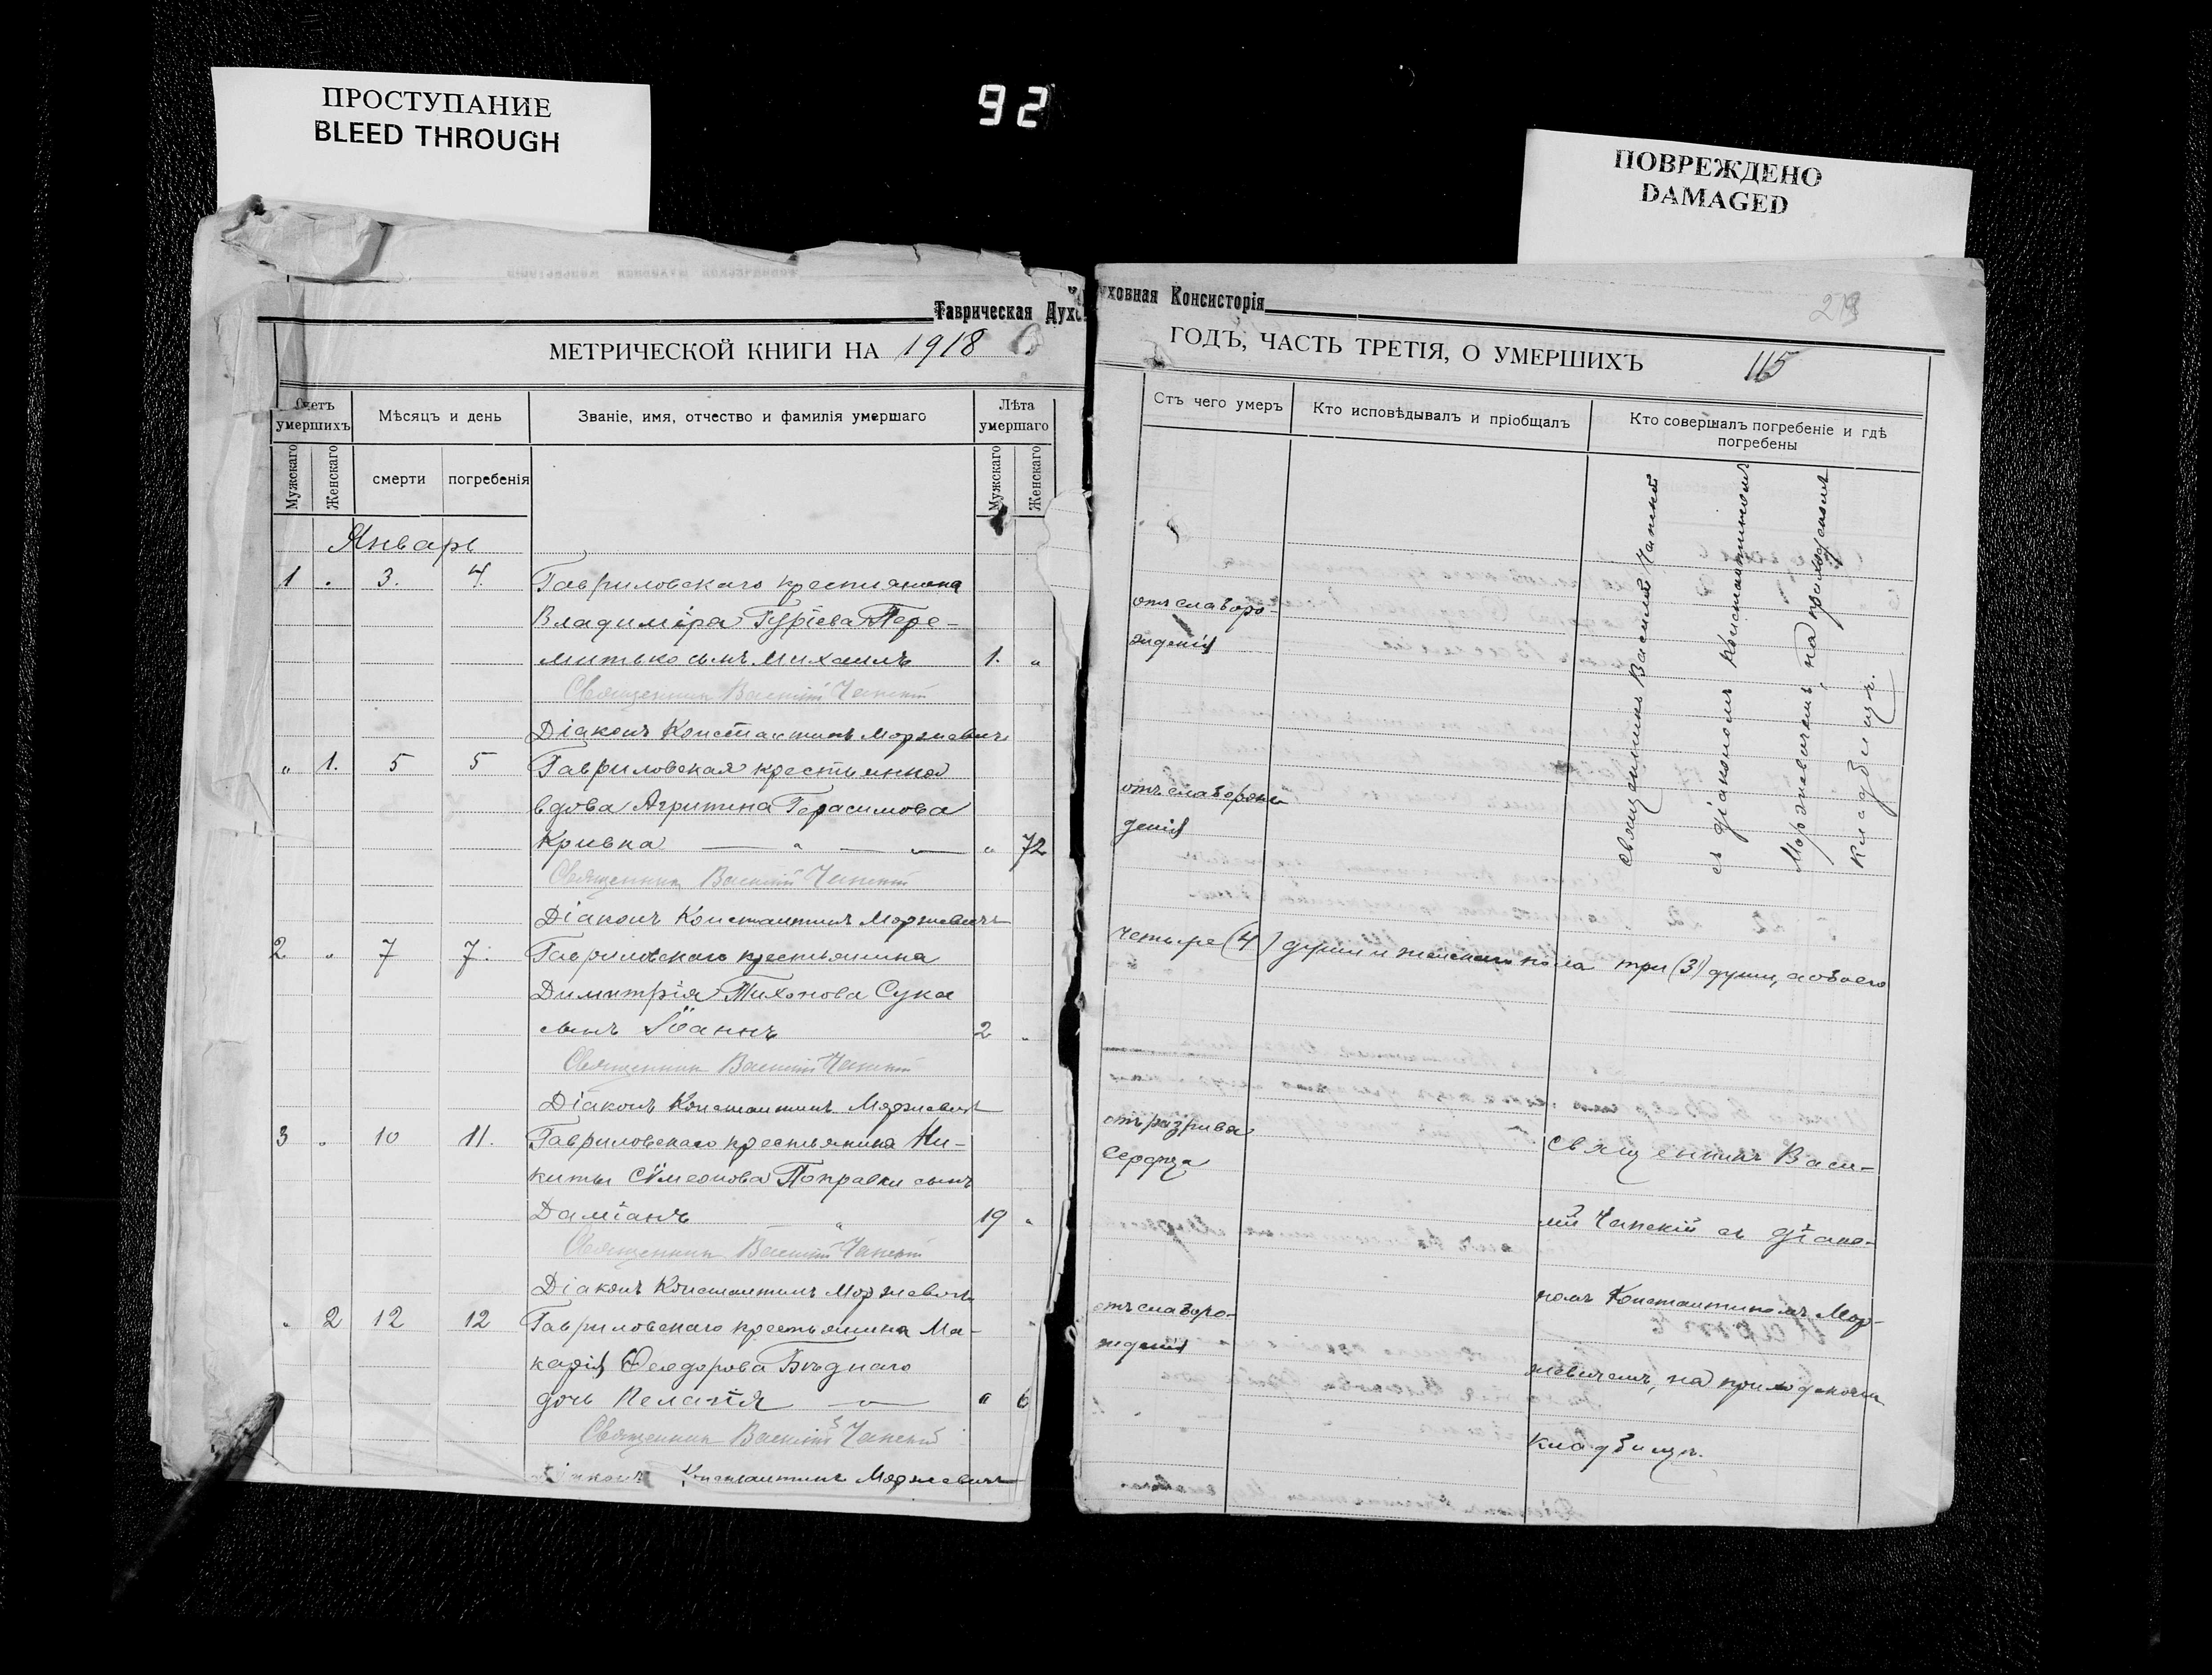 ПРОСТУПАНИЕ
BLEED THROUGH
92
ПОВРЕЖДЕНО
DAMAGED
Таврическая Духо
МЕТРИЧЕСКОЙ КНИГИ НА 1918
Счетъ умершихъ
Мѣсяцъ и день
Званіе, имя, отчество и фамилія умершаго
Лѣта умершаго
Мужскаго
Женскаго
смерти
погребенія
Мужскаго
Женскаго
Январь
1 " 3. 4. Гавриловскаго крестьянина
Владиміра Гуріева Пере-
митько сынъ Михаилъ 1. "
Священникъ Василій Чапскій
Діаконъ Константинъ Моржевичъ
" 1. 5 5 Гавриловская крестьянка
вдова Агрипина Герасимова
Кривка " " 72
Священникъ Василій Чапскій
Діаконъ Константинъ Моржевичъ
2 " 7 7. Гавриловскаго крестьянина
Димитрія Тихонова Сука
сынъ Іоаннъ 2 "
Священникъ Василій Чапскій
Діаконъ Константинъ Моржевичъ
3 " 10 11. Гавриловскаго крестьянина Ни-
киты Сѵмеонова Поправки сынъ
Даміанъ " 19 "
Священникъ Василій Чапскій
Діаконъ Константинъ Моржевичъ
" 2 12 12 Гавриловскаго крестьянина Ма-
карія Ѳеодорова Бѣднаго
дочь Пелагія " 6
Священникъ Василій Чапскій
Діаконъ Константинъ Моржевичъ
уховная Консисторія
ГОДЪ, ЧАСТЬ ТРЕТІЯ, О УМЕРШИХЪ 115
Отъ чего умеръ
Кто исповѣдывалъ и пріобщалъ
Кто совершалъ погребеніе и гдѣ погребены
отъ слаборо-
жденія
Священникъ Василій Чапскій
съ діакономъ Константиномъ
Моржевичемъ, на приходскомъ
кладбищѣ.
отъ слаборож
денія
четыре (4) души и женскаго пола три (3) души, а обоего
отъ разрыва
сердца
Священникъ Васи-
лій Чапскій съ діако-
номъ Константиномъ Мор-
отъ слаборо-
жденія
жевичемъ, на приходскомъ
кладбищѣ.